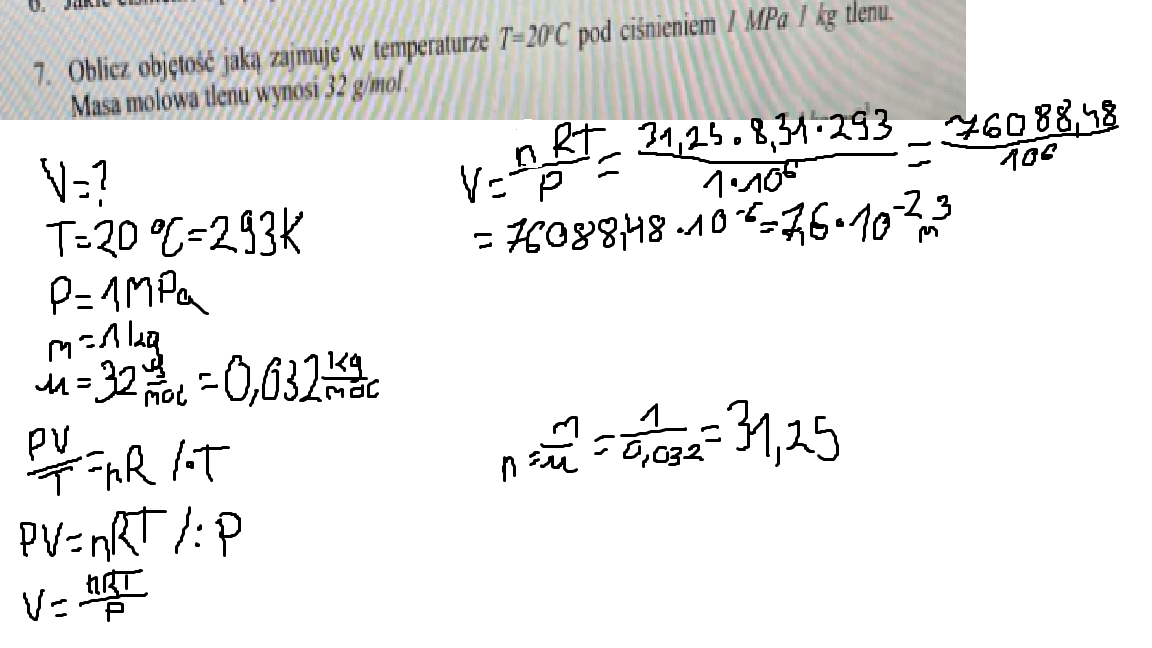 7. Oblicz objętość jaką zajmuje w temperaturze T=20°C pod ciśnieniem 1 MPa 1 kg tlenu.
Masa molowa tlenu wynosi 32 g/mol.
V=?
T=20 °C=293K
P=1MPa
m=1kg
μ=32 g/mol =0,032 kg/mol
PV/T=nR /·T
PV=nRT /: P
V=nRT/P
V=nRT/P=31,25·8,31·293/1·10⁶=76088,48/10⁶
=76088,48·10⁻⁶=7,6·10⁻² m³
n=m/μ=1/0,032=31,25